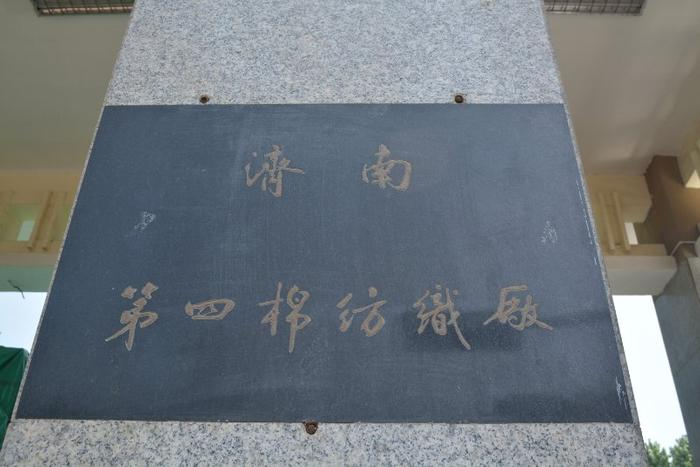 濟南
第四棉紡織廠